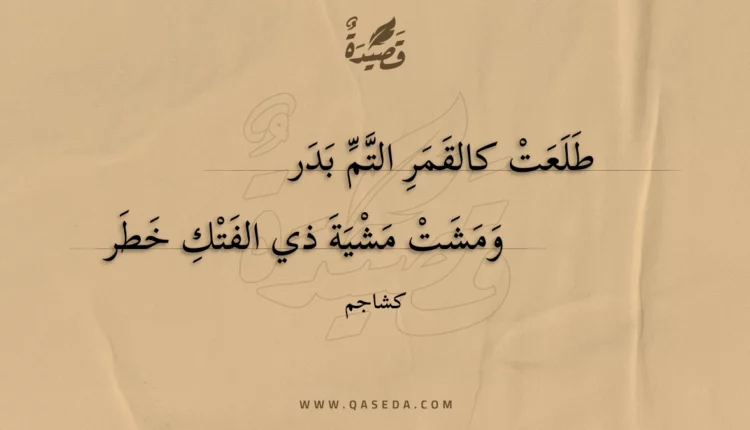 قَصِيْدَةٌ
طَلَعَتْ كالقَمَرِ التَّمِّ بَدَر
وَمَشَتْ مَشْيَةَ ذي الفَتْكِ خَطَر
كشاجم
WWW.QASEDA.COM